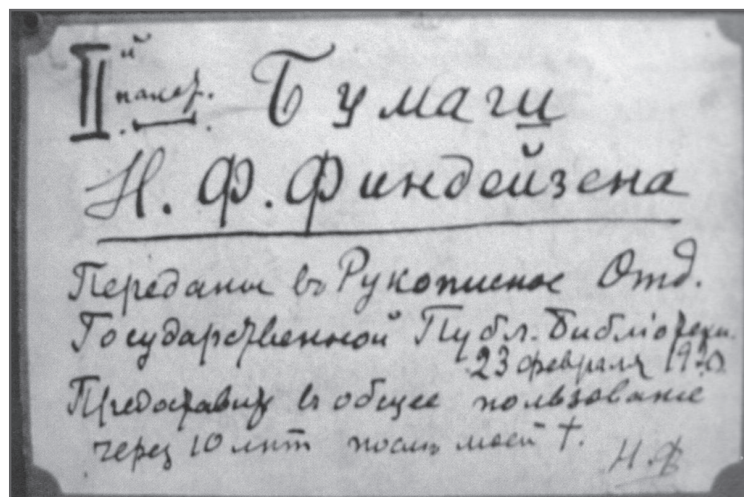 II й пакет. Бумаги
Н. Ф. Финдейзена
Переданы въ Рукописное Отд.
Государственной Публ. Библіотеки.
23 февраля 1920
Предоставить въ общее пользованіе
через 10 лѣт послѣ моей †.
Н.Ф